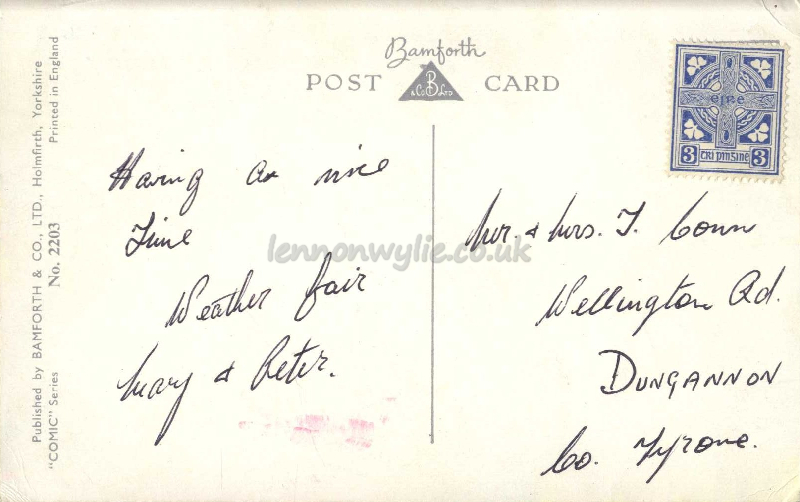 Bamforth
POST CARD
B
& Co Ltd
Published by BAMFORTH & CO., LTD., Holmfirth, Yorkshire
"COMIC" Series No. 2203 Printed in England
EIRE
3 TRI PINSINE 3
Having a nice
Time
Weather fair
Mary & Peter.
Mr. & Mrs. T. Conn
Wellington Rd.
DUNGANNON
Co. Tyrone.
lennonwylie.co.uk